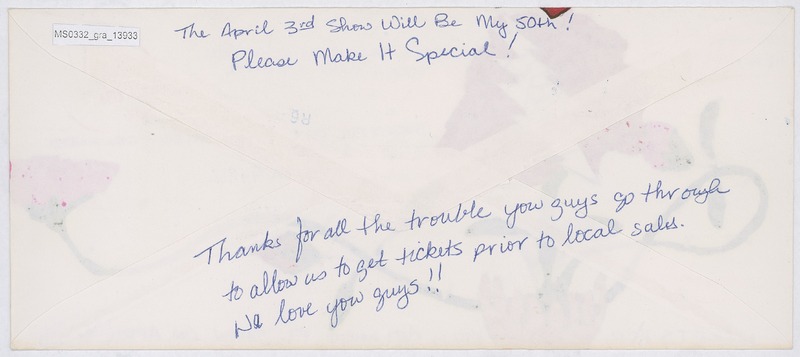 MS0332_gra_13933
The April 3rd Show Will Be My 50th!
Please Make It Special!
R6
Thanks for all the trouble you guys go through
to allow us to get tickets prior to local sales.
We love you guys!!